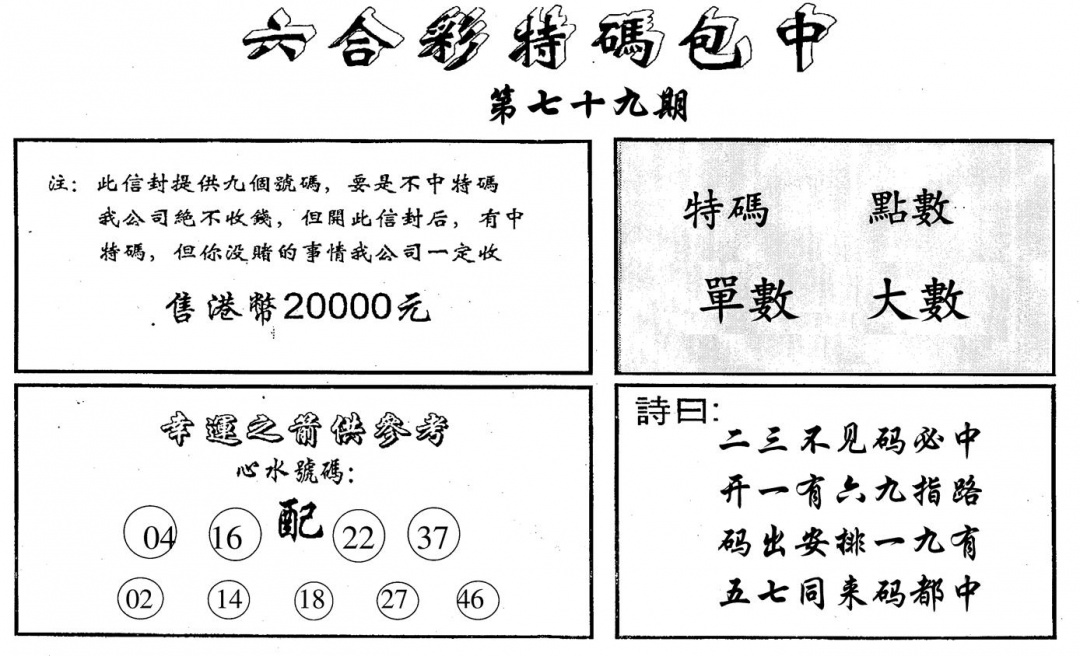 六合彩特碼包中
第七十九期
注：此信封提供九個號碼，要是不中特碼
我公司絕不收錢，但開此信封后，有中
特碼，但你没賭的事情我公司一定收
售港幣20000元
特碼 點數
單數 大數
幸運之箭供參考
心水號碼：
04 16 配 22 37
02 14 18 27 46
詩曰：
二三不见码必中
开一有六九指路
码出安排一九有
五七同来码都中